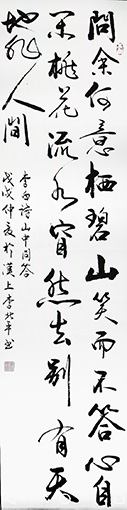 問余何意栖碧山笑而不答心自
閑桃花流水窅然去別有天
地非人間
李白詩山中問答
戊戌仲夏於漢上李北平書